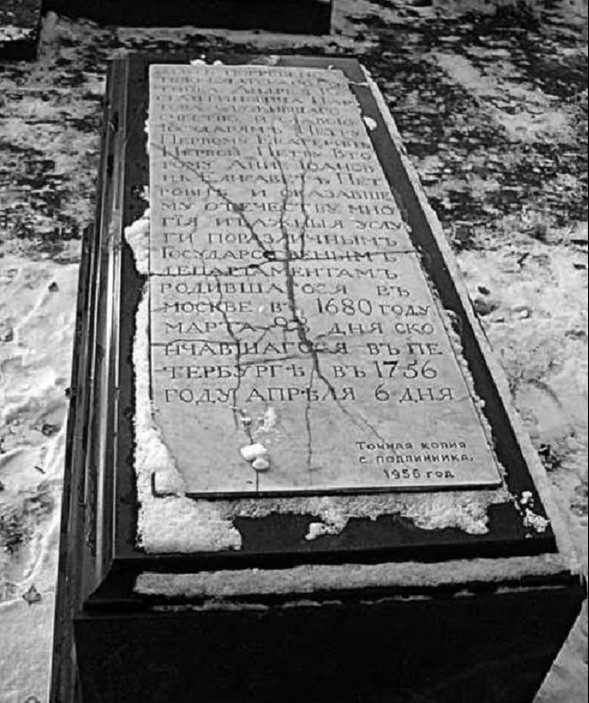 ПОГРЕБЕНО
ГОСУДАРЯМЪ ПЕТРУ
ПЕРВОМУ ЕКАТЕРИНЕ
ПЕРВОЙ ПЕТРУ ВТО
РОМУ АННЕ ІОАНОВ
НЕ ЕЛИСАВЕТЪ ПЕТ
РОВНЪ И ОКАЗАВШЕ
МУ ОТЕЧЕСТВУ МНО
ГІЯ И ВАЖНЫЯ УСЛУ
ГИ ПОРАЗЛИЧНЫМЪ
ГОСУДАРСТВЕНЫМЪ
ДЕПАРТАМЕНТАМЪ
РОДИВШАГОСЯ ВЪ
МОСКВЕ ВЪ 1680 ГОДУ
МАРТА ДНЯ СКО
НЧАВШАГОСЯ ВЪ ПЕ
ТЕРБУРГѢ ВЪ 1756
ГОДУ АПРѢЛЯ 6 ДНЯ
Точная копия
с подлинника.
1956 год